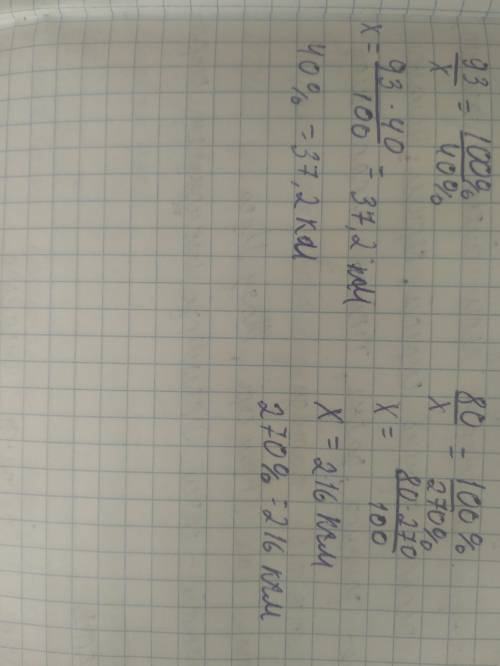 93/x = 100%/40%
x = 93·40/100 = 37,2 км
40% = 37,2 км
80/x = 100%/270%
x = 80·270/100
x = 216 км
270% = 216 км